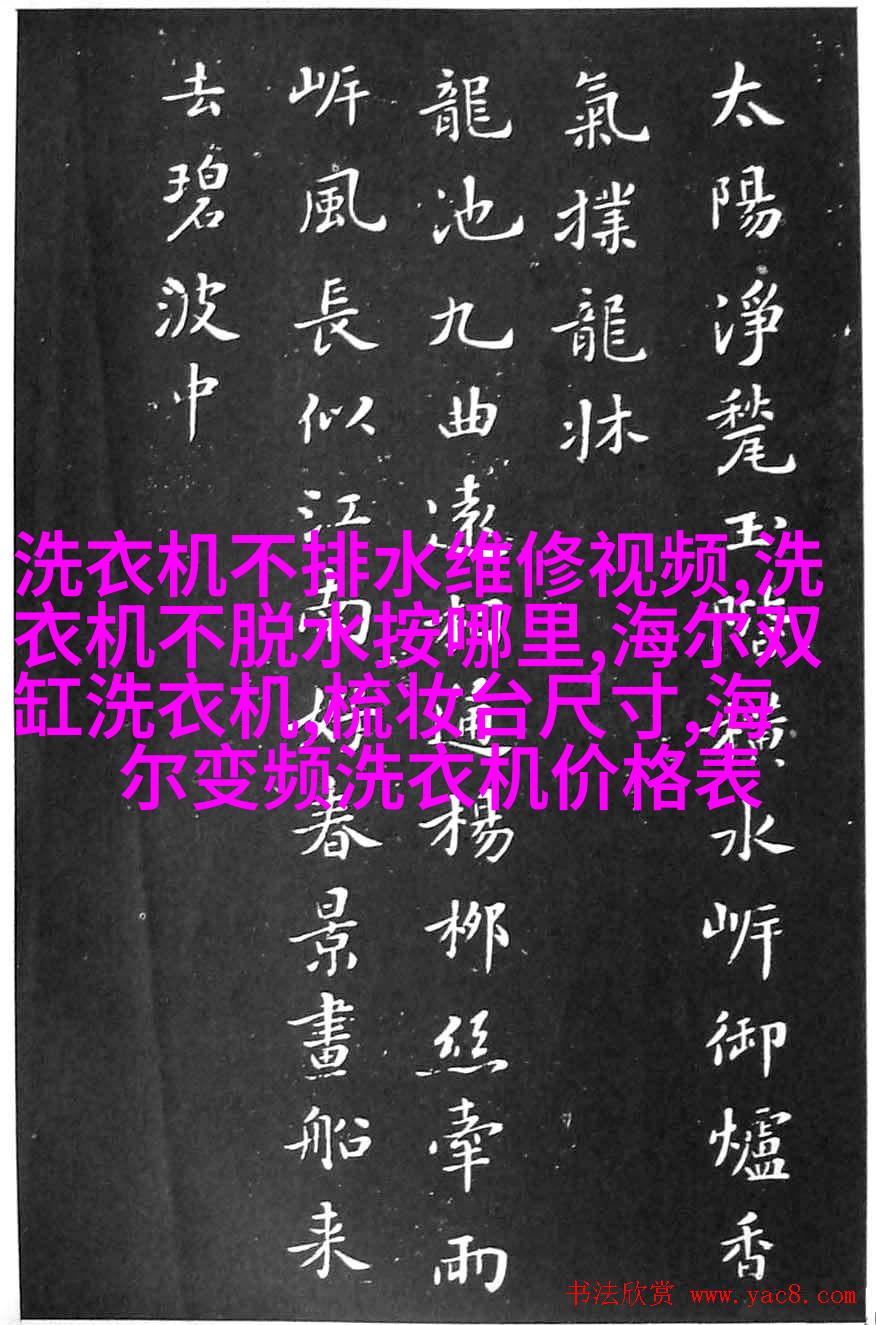 太陽淨甃玉階橫水岍御爐香
氣撲龍牀
龍池九曲遠相通楊柳絲牽兩
岍風長似江南好春景畫船来
去碧波中
洗衣机不排水维修视频,洗
衣机不脱水按哪里,海尔双
缸洗衣机,梳妆台尺寸,海
尔变频洗衣机价格表
书法欣赏 www.yac8.com